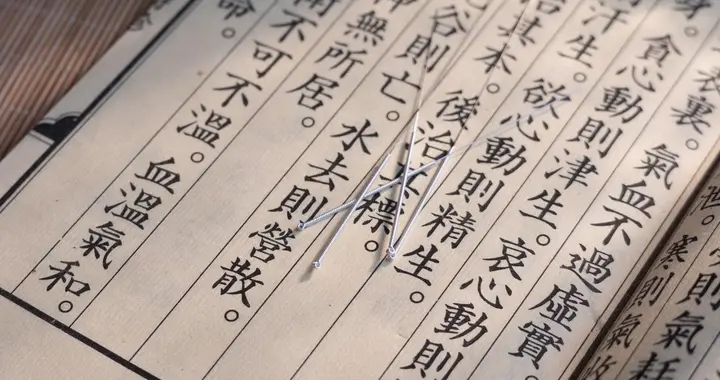 則氣耗
世。寒則氣收
表裏。氣血不過虛實。
身。貪心動則津生。哀心動則
汗生。欲心動則精生。
治其本。後治其標。
谷則亡。水去則營散。
神無所居。
術不可不溫。血溫氣和。
命。